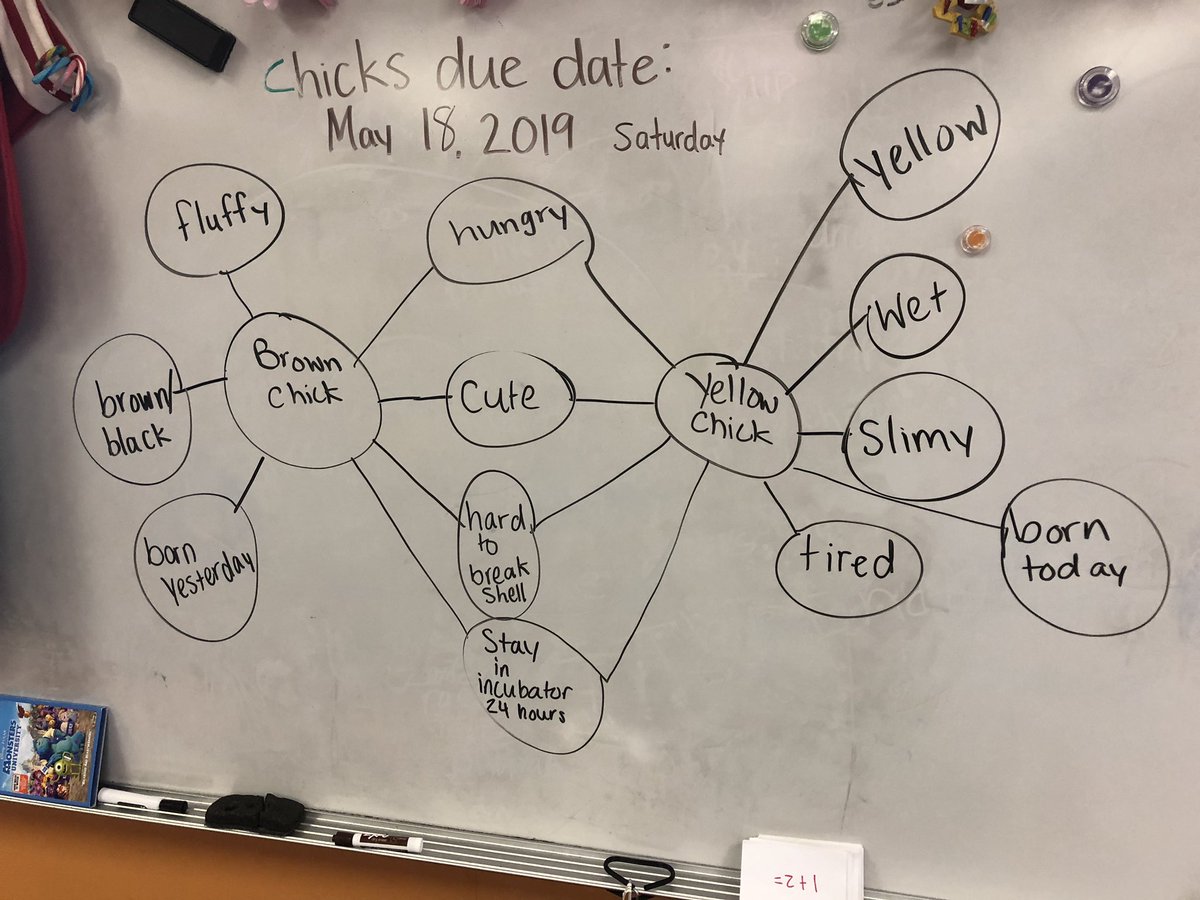 Chicks due date:
May 18, 2019 Saturday
fluffy
brown/
black
born
yesterday
Brown
Chick
hungry
Cute
hard
to
break
shell
Stay
in
incubator
24 hours
Yellow
Chick
yellow
Wet
Slimy
born
today
tired
MONSTERS
UNIVERSITY
1+2=